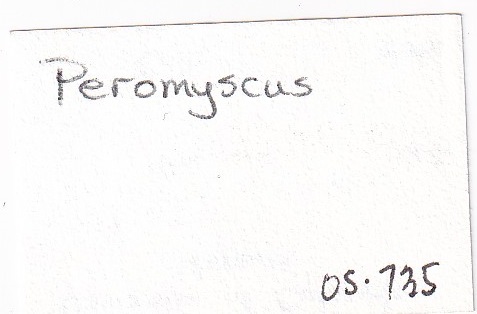 Peromyscus
OS.735